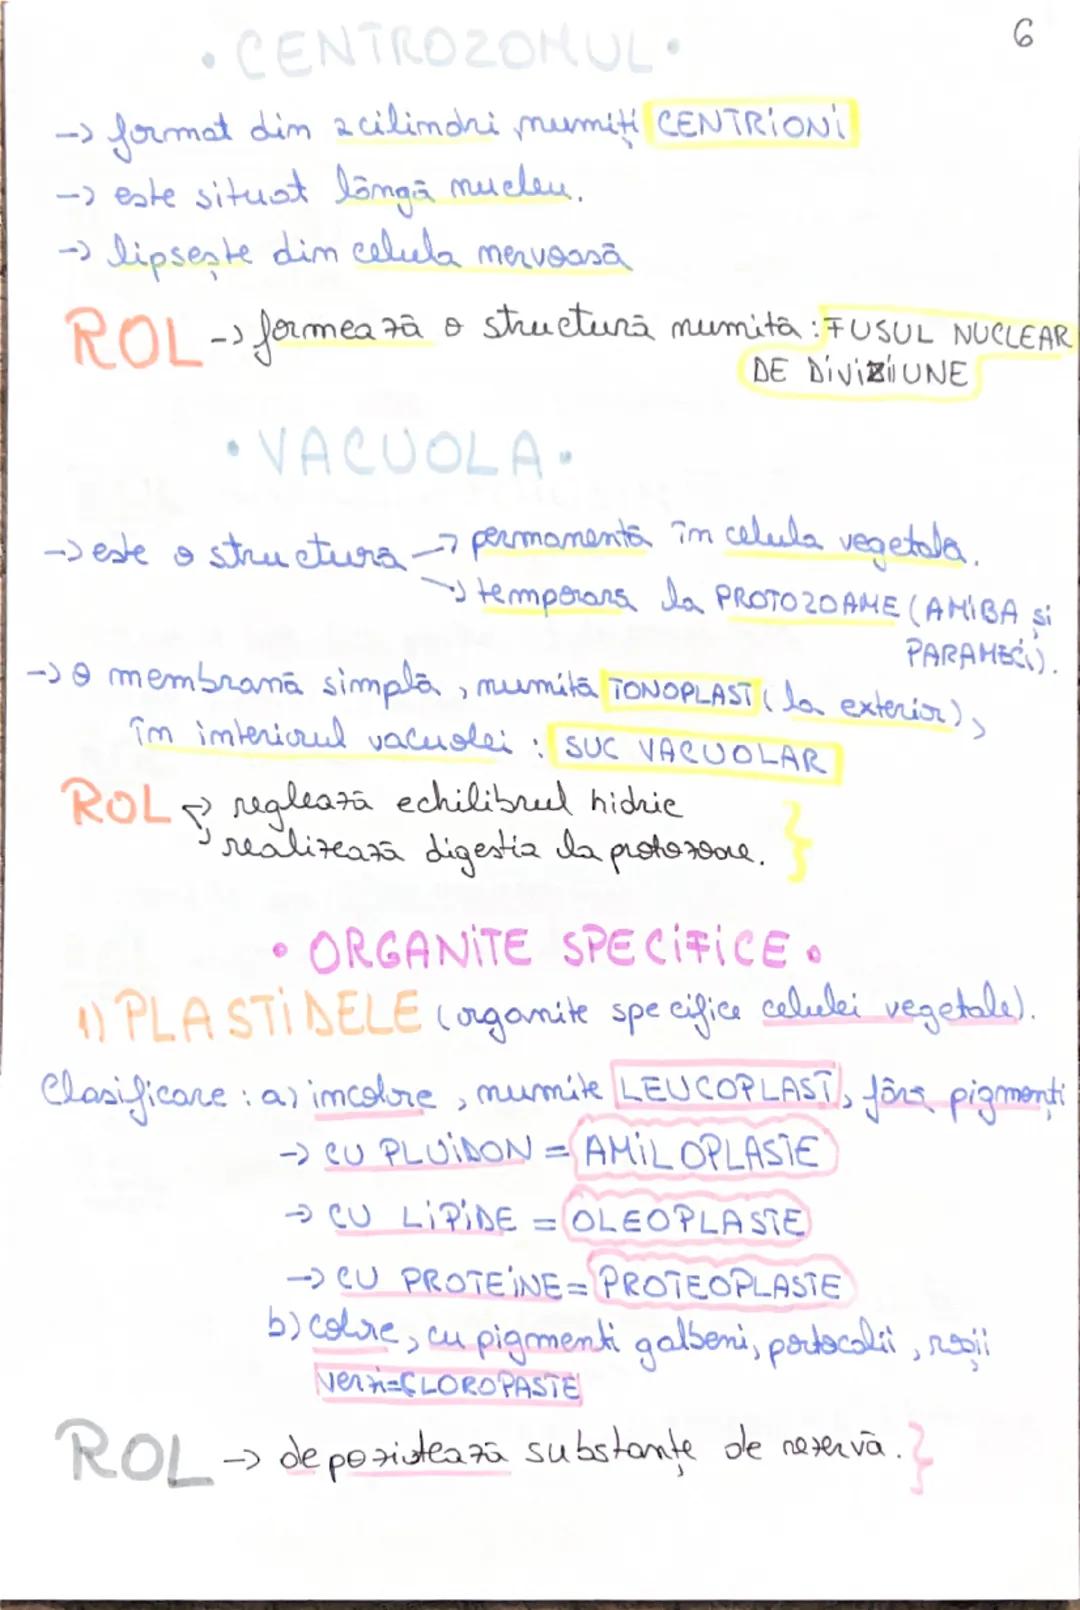 6
• CENTROZOMUL •
-> format din 2 cilindri numiți CENTRIONI
-> este situat lângă nucleu.
-> lipsește din celula nervoasă
ROL -> formează o structură numită : FUSUL NUCLEAR
DE DIVIZIUNE
• VACUOLA •
-> este o structură -> permanentă în celula vegetală.
-> temporară la PROTOZOARE (AMIBA și
PARAMECI).
-> O membrană simplă, numită TONOPLAST (la exterior),
în interiorul vacuolei : SUC VACUOLAR
ROL -> reglează echilibrul hidric
-> realizează digestia la protozoare. }
• ORGANITE SPECIFICE •
1) PLASTIDELE (organite specifice celulei vegetale).
Clasificare : a) incolore, numite LEUCOPLAST, fără pigmenți
-> CU PLUIDON = AMILOPLASTE
-> CU LIPIDE = OLEOPLASTE
-> CU PROTEINE = PROTEOPLASTE
b) colore, cu pigmenti galbeni, portocalii, roșii
verzi=CLOROPASTE
ROL -> depozistează substanțe de rezervă. }